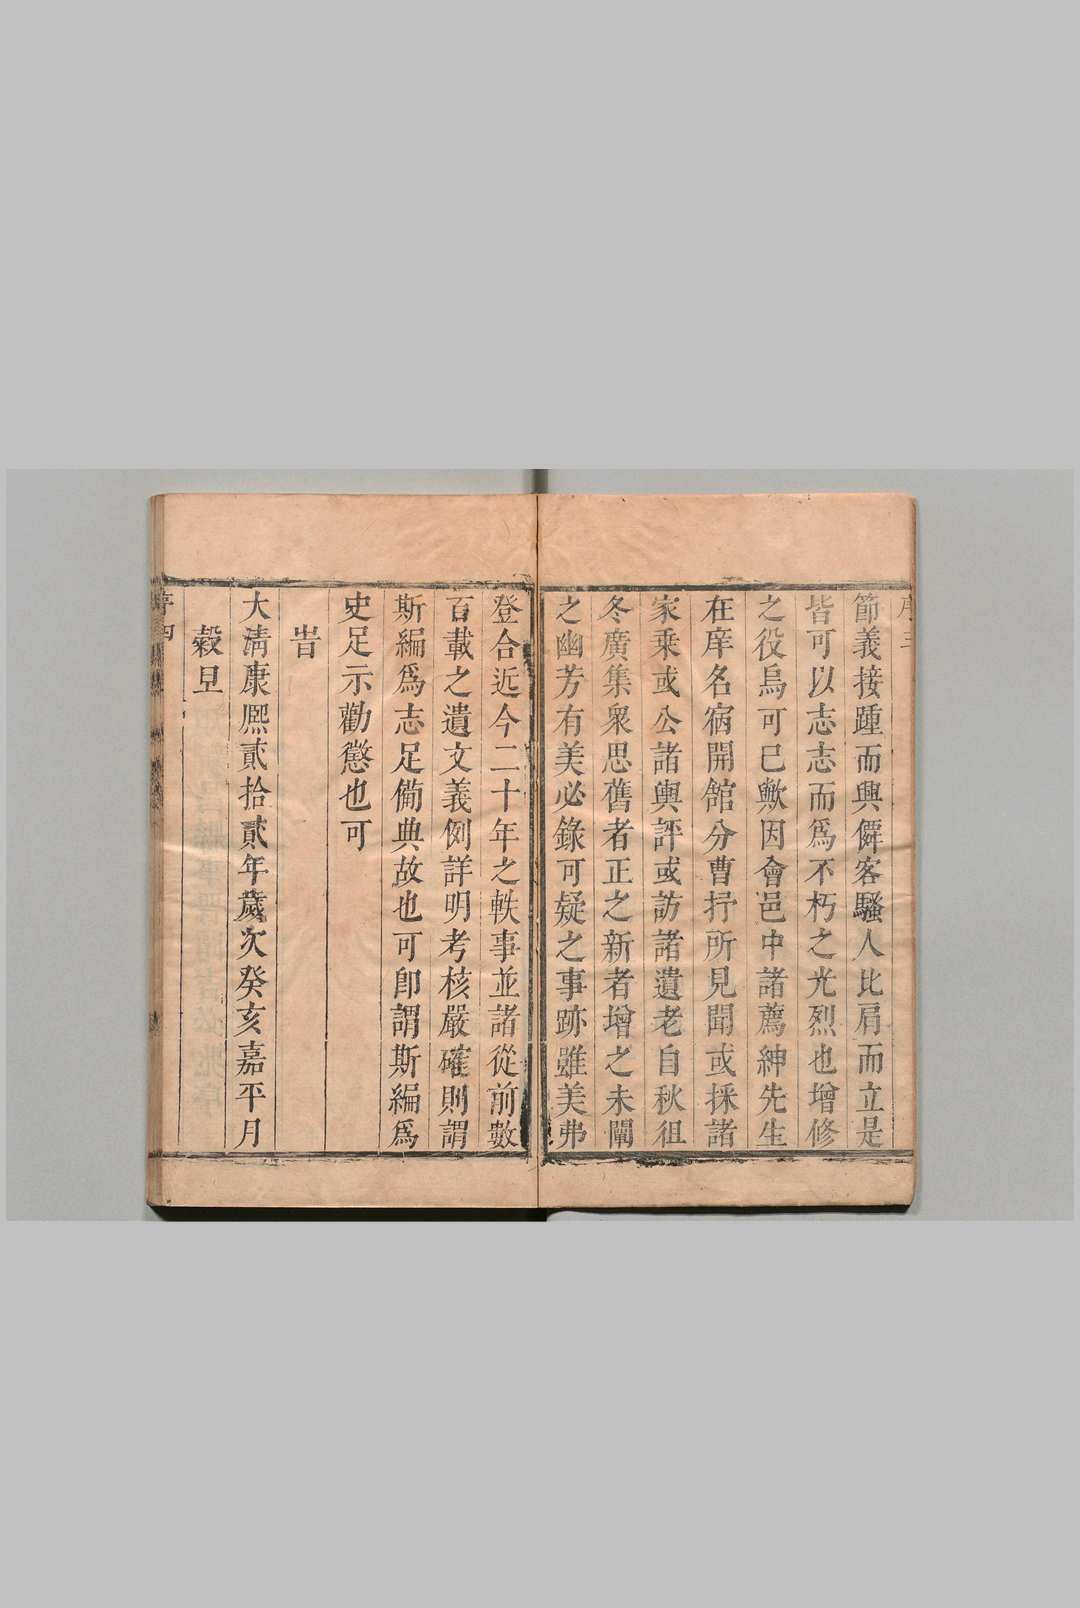 節義接踵而興僲客騷人比肩而立是
皆可以志志而爲不朽之光烈也增修
之役烏可已歟因會邑中諸薦紳先生
在庠名宿開館分曹抒所見聞或採諸
家乘或公諸輿評或訪諸遺老自秋徂
冬廣集衆思舊者正之新者增之未闡
之幽芳有美必錄可疑之事跡雖美弗
登合近今二十年之軼事並諸從前數
百載之遺文義例詳明考核嚴確則謂
斯編爲志足俻典故也可卽謂斯編爲
史足示勸懲也可
旹
大淸康熈貳拾貳年歲次癸亥嘉平月
穀旦
序四